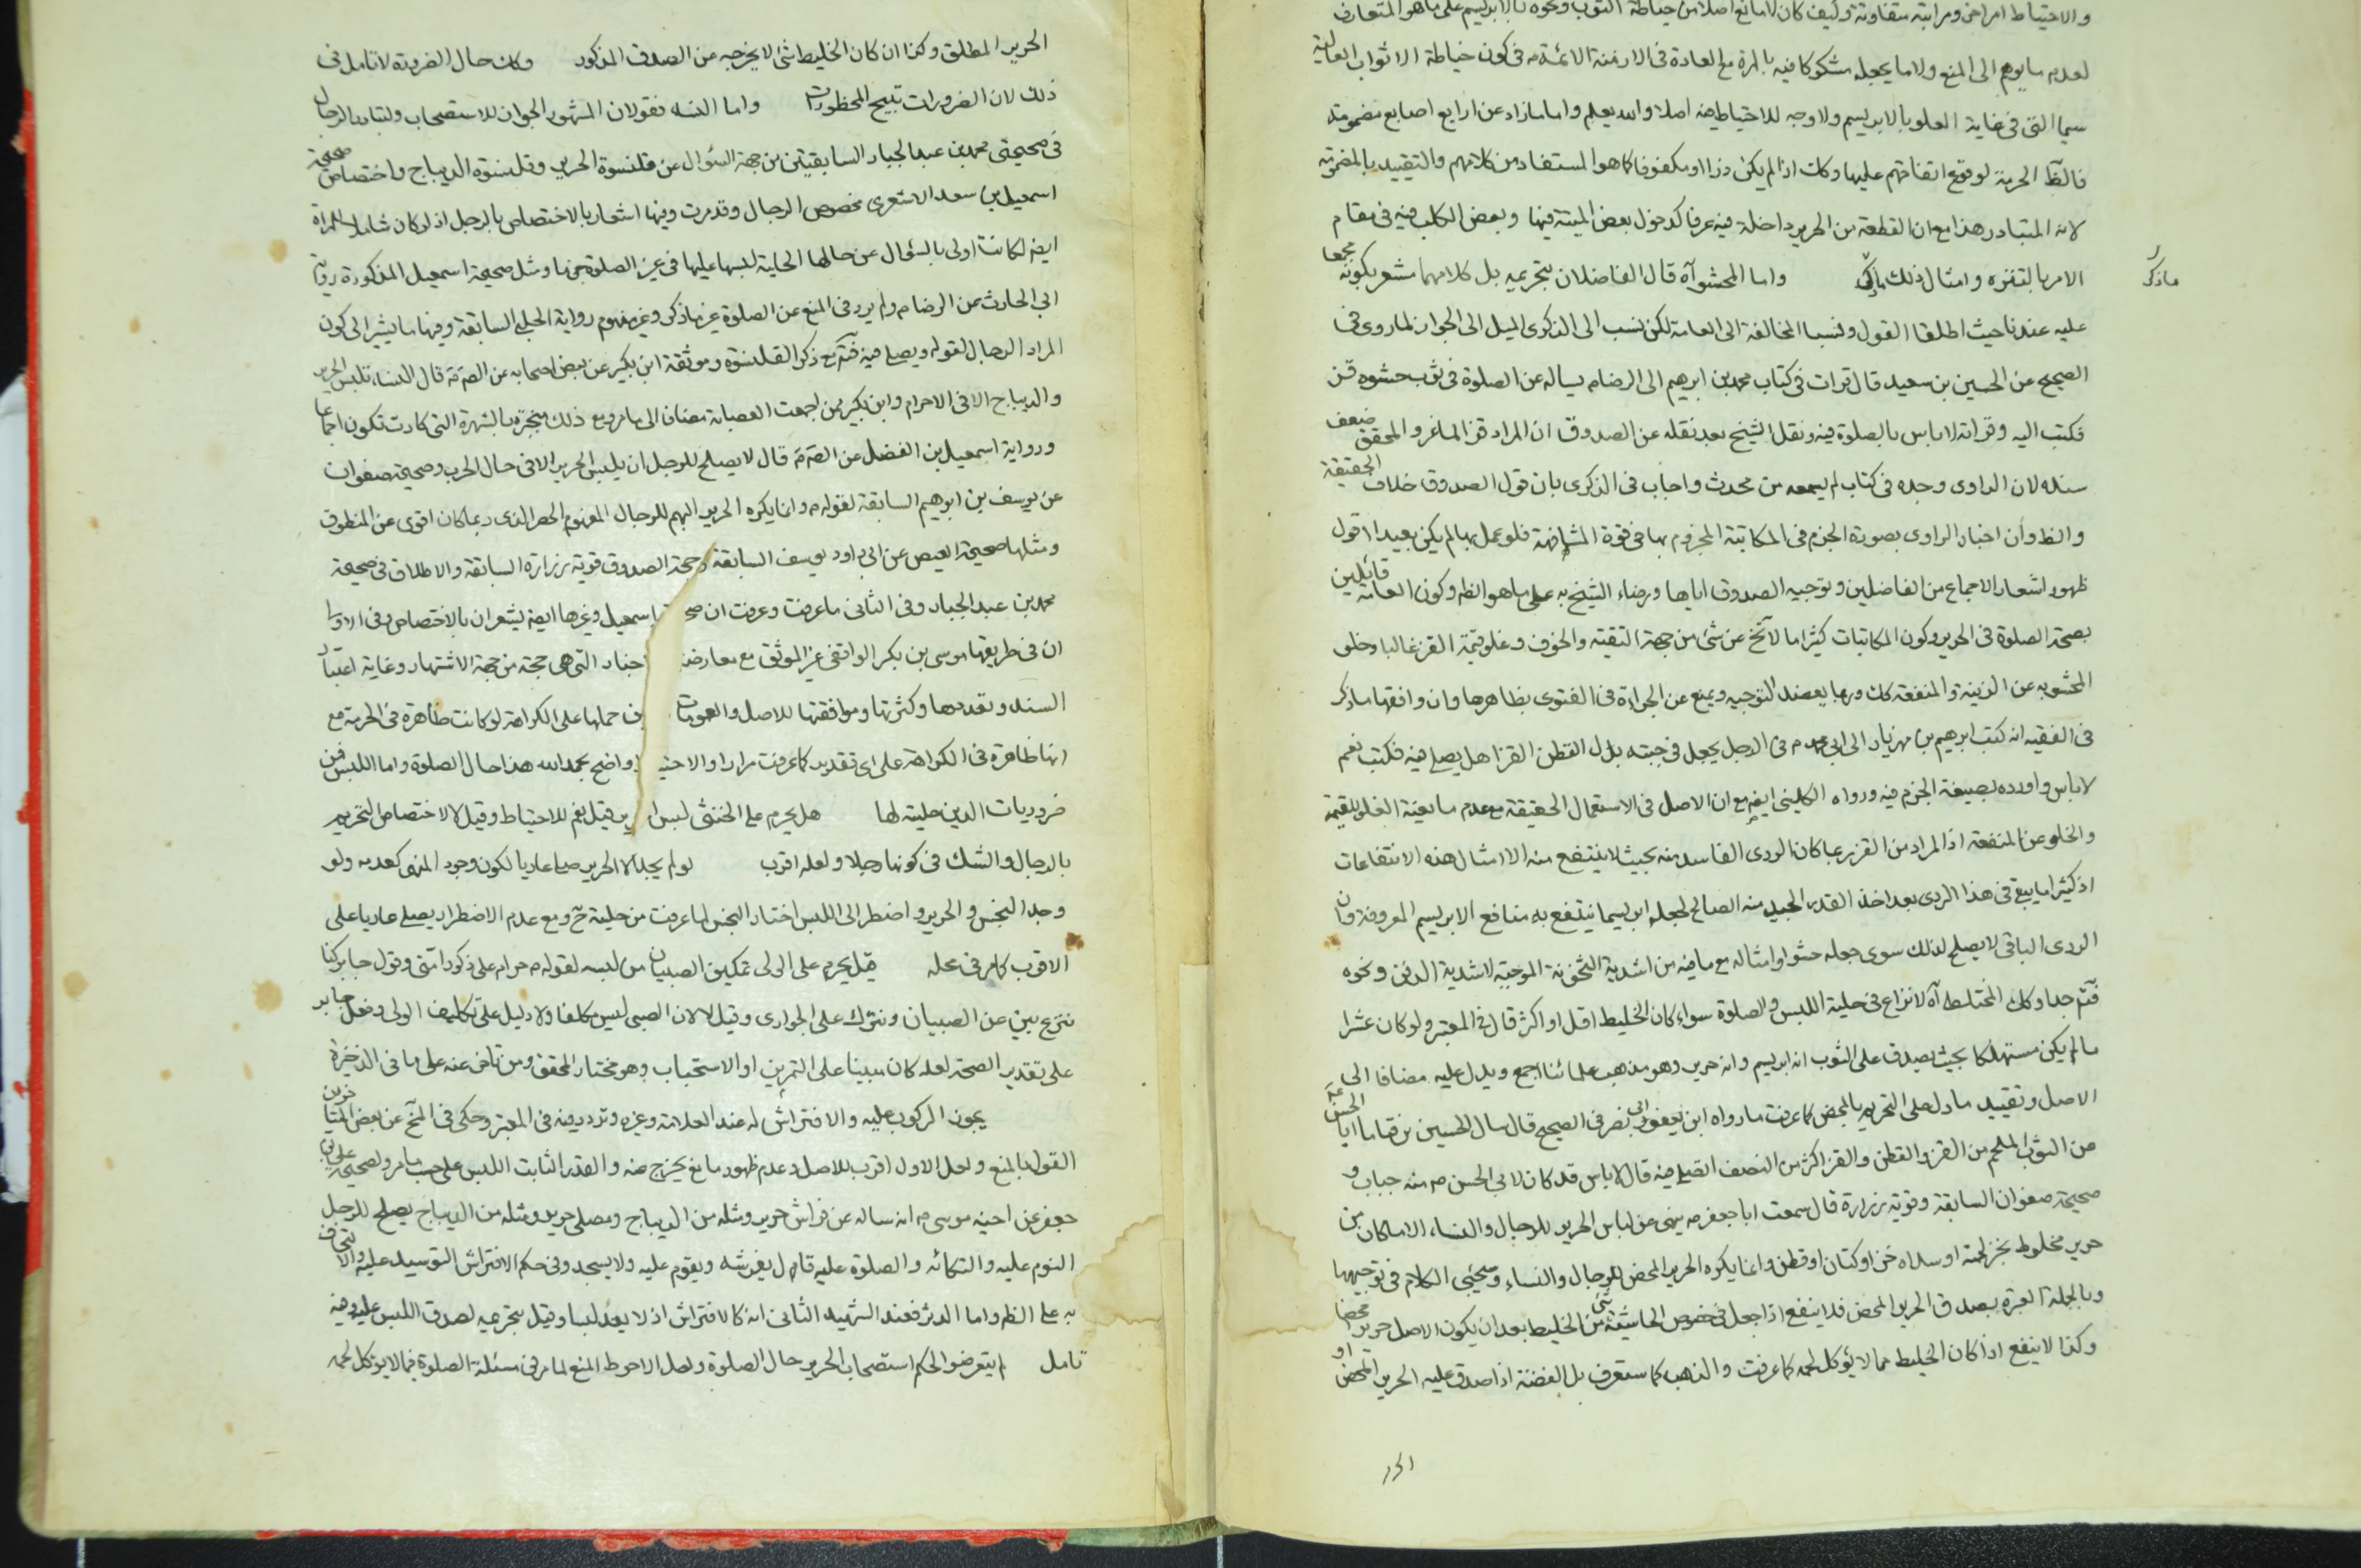 والاحتياط امر اخر ومراتبه متفاوتة وكيف كان لا مانع اصلا من خياطة الثوب ونحوه بالابريسم على ما هو المتعارف
لعدم ما يوهم الى المنع ولا ما يجعله مشكوكا فيه بالمرة مع العادة فى الازمنة الائمة م فى كون خياطة الاثواب العالية
سيما التى فى غاية العلو بالابريسم ولا وجه للاحتياط منه اصلا والله يعلم واما ما زاد عن اربع اصابع مضمومة
فالظ الحرمة لوقوع اتفاقهم عليها وكك اذا لم يكن زرا او مكفوفا كما هو المستفاد من كلامهم والتقييد بالمضمومة
لانه المتبادر هذا مع ان القطعة من الحرير داخلة فيه عرفا كدخول بعض الميتة فيها وبعض الكلب فيه فى مقام
الامر بالتنزه وامثال ذلك واما المحشو آه قال الفاضلان بتحريمه بل كلامهما مشعر بكونه مجمعا
ما ذكر
عليه عندنا حيث اطلقا القول ونسبا المخالفة الى العامة لكن نسب الى الذكرى الميل الى الجواز لما روى فى
الصحيح عن الحسين بن سعيد قال قرات فى كتاب محمد بن ابرهيم الى الرضا م يساله عن الصلوة فى ثوب حشوه قز
فكتب اليه وقراته لا باس بالصلوة فيه ونقل الشيخ بعد نقله عن الصدوق ان المراد قز الماعز والمحقق ضعف
سنده لان الراوى وجده فى كتاب لم يسمعه من محدث واجاب فى الذكرى بان قول الصدوق خلاف الحقيقة
والظ وان اخبار الراوى بصورة الجزم فى المكاتبة المجزوم بها فى قوة المشافهة فلو عمل بها لم يكن بعيدا اقول
ظهور اشعار الاجماع من الفاضلين وتوجيه الصدوق اياها ورضاء الشيخ به على ما هو الظ وكون العامة قائلين
بصحة الصلوة فى الحرير وكون المكاتبات كثيرا ما لا تخ عن شئ من جهة التقية والخوف وغلو قيمة القز غالبا وخلو
المحشو به عن الزينة والمنفعة كك وربما يعضد التوجيه ويمنع عن الجراءة فى الفتوى بظاهرها وان وافقها ما ذكر
فى الفقيه انه كتب ابرهيم بن مهزيار الى ابى محمد م فى الرجل يجعل فى جبته بدل القطن القز هل يصلى فيه فكتب نعم
لا باس واورده بصيغة الجزم فيه ورواه الكلينى ايضه مع ان الاصل فى الاستعمال الحقيقة مع عدم مانعية الغلو للقيمة
والخلو عن المنفعة اذ المراد من القز ربما كان الردى الفاسد منه بحيث لا ينتفع منه الا امثال هذه الانتفاعات
اذ كثيرا ما يبقى فى هذا الردى بعد اخذ القدر الجيد منه الصالح لجعله ابريسما ينتفع به منافع الابريسم المعروفة وان
الردى الباقى لا يصلح لذلك سوى جعله حشوا وامثاله مع ما فيه من اشدية الثخونة الموجبة لاشدية الدفئ ونحوه
فتم جدا وكك المختلط آه لا نزاع فى حلية اللبس والصلوة سواء كان الخليط اقل او اكثر قال فى المعتبر ولو كان عشرا
ما لم يكن مستهلكا بحيث يصدق على الثوب انه ابريسم وانه حرير وهو مذهب علمائنا اجمع ويدل عليه مضافا الى
الاصل وتقييد ما دل على التحريم بالمحض كما عرفت ما رواه ابن ابى نصر فى الصحيح قال سال الحسين بن قياما ابا الحسن
عن الثوب الملحم من القز والقطن والقز اكثر من النصف ايصلى فيه قال لا باس قد كان لابى الحسن م منه جباب و
صحيحة صفوان السابقة وقوية زرارة قال سمعت ابا جعفر م ينهى عن لباس الحرير للرجال والنساء الا ما كان من
حرير مخلوط بخز لحمته او سداه خز او كتان او قطن وانما يكره الحرير المحض للرجال والنساء وسيجئ الكلام فى توجيهها
وبالجملة العبرة بصدق الحرير المحض فلا ينفع اذا جعل فى خصوص الحاشية شئ من الخليط بعد ان يكون الاصل حريرا محضا
وكذا لا ينفع اذا كان الخليط مما لا يؤكل لحمه كما عرفت والذهب كما ستعرف بل الفضة اذا صدق عليه الحرير المحض او
الحرير المطلق وكذا ان كان الخليط شئ لا يخرجه عن الصدق المذكور وكك حال الضرورة لا تامل فى
ذلك لان الضرورات تبيح المحظورات واما النساء فنقول ان المشهور الجواز للاستصحاب ولتبادر الرجال
فى صحيحتى محمد بن عبد الجبار السابقتين من جهة السؤال عن قلنسوة الحرير وقلنسوة الديباج واختصاص صحيحة
اسمعيل بن سعد الاشعرى بخصوص الرجال وقد مرت وفيها اشعار بالاختصاص بالرجل اذ لو كان شاملا للمراة
ايضه لكانت اولى بالسؤال عن حالها الحلية لبسها عليها فى غير الصلوة جزما ومثل صحيحة اسمعيل المذكورة رواية
ابى الحارث عن الرضا م ولم يرد فى المنع عن الصلوة غير ما ذكر وغير مفهوم رواية الحلبى السابقة وفيها ما يشير الى كون
المراد الرجال لقوله ويصلى فيه فتم مع ذكر القلنسوة وموثقة ابن بكير عن بعض اصحابه عن الصه م قال النساء تلبس الحرير
والديباج الا فى الاحرام وابن بكير ممن اجمعت العصابة مضافا الى ما مر ومع ذلك منجبرة بالشهرة التى كادت تكون اجماعا
ورواية اسمعيل بن الفضل عن الصه م قال لا يصلح للرجل ان يلبس الحرير الا فى حال الحرب وصحيحة صفوان
عن يوسف بن ابرهيم السابقة لقوله م وانما يكره الحرير المبهم للرجال المفهوم الحصر الذى ربما كان اقوى عن المنطوق
ومثلها صحيحة العيص عن ابى داود يوسف السابقة وحجة الصدوق قوية زرارة السابقة والاطلاق فى صحيحة
محمد بن عبد الجبار وفى الثانى ما عرفت وعرفت ان صحيحة اسمعيل وغيرها ايضه يشعران بالاختصاص وفى الاول
ان فى طريقها موسى بن بكر الواقفى غير الموثق مع معارضة اخبار التى هى حجة من جهة الاشتهار وغاية اعتبار
السند وتعددها وكثرتها وموافقتها للاصل والعمومات حملها على الكراهة لو كانت ظاهرة فى الحرمة مع
انها ظاهرة فى الكراهة على اى تقدير كما عرفت مرارا والاحتياط واضح بحمد الله هذا حال الصلوة واما اللبس فمن
ضروريات الدين حليته لها هل يحرم على الخنثى لبس الحرير قيل نعم للاحتياط وقيل لا لاختصاص التحريم
بالرجال والشك فى كونها رجلا ولعله اقرب لو لم يجد الا الحرير صلى عاريا لكون وجود المنهى كعدمه ولو
وجد النجس والحرير واضطر الى اللبس اختار النجس لما عرفت من حليته ح ومع عدم الاضطرار يصلى عاريا على
الاقرب كما مر فى محله قيل يحرم على الولى تمكين الصبيان من لبسه لقوله م حرام على ذكور امتى وقول جابر كنا
ننزعه عن الصبيان ونتركه على الجوارى وقيل لا لان الصبى ليس مكلفا ولا دليل على تكليف الولى وفعل جابر
على تقدير الصحة لعله كان مبنيا على التمرين او الاستحباب وهو مختار المحقق ومن تاخر عنه على ما فى الذخيرة
يجوز الركوب عليه والافتراش له عند العلامة وغيره وتردد فيه فى المعتبر وحكى فى المخ عن بعض المتاخرين
القول بالمنع ولعل الاول اقرب للاصل وعدم ظهور مانع يخرج عنه والقدر الثابت اللبس على حسب ما مر ولصحيحة على بن
جعفر عن اخيه موسى م انه ساله عن فراش حرير ومثله من الديباج ومصلى حرير ومثله من الديباج يصلح للرجل
النوم عليه والتكائه والصلوة عليه قال يفرشه ويقوم عليه ولا يسجد وفى حكم الافتراش التوسيد عليه والالتحاف
به على الظ واما الدثر فعند الشهيد الثانى انه كالافتراش اذ لا يعد لبسا وقيل بتحريمه لصدق اللبس عليه وفيه
تامل لم يتعرضوا لحكم استصحاب الحرير حال الصلوة ولعل الاحوط المنع لما مر فى مسئلة الصلوة فيما لا يؤكل لحمه